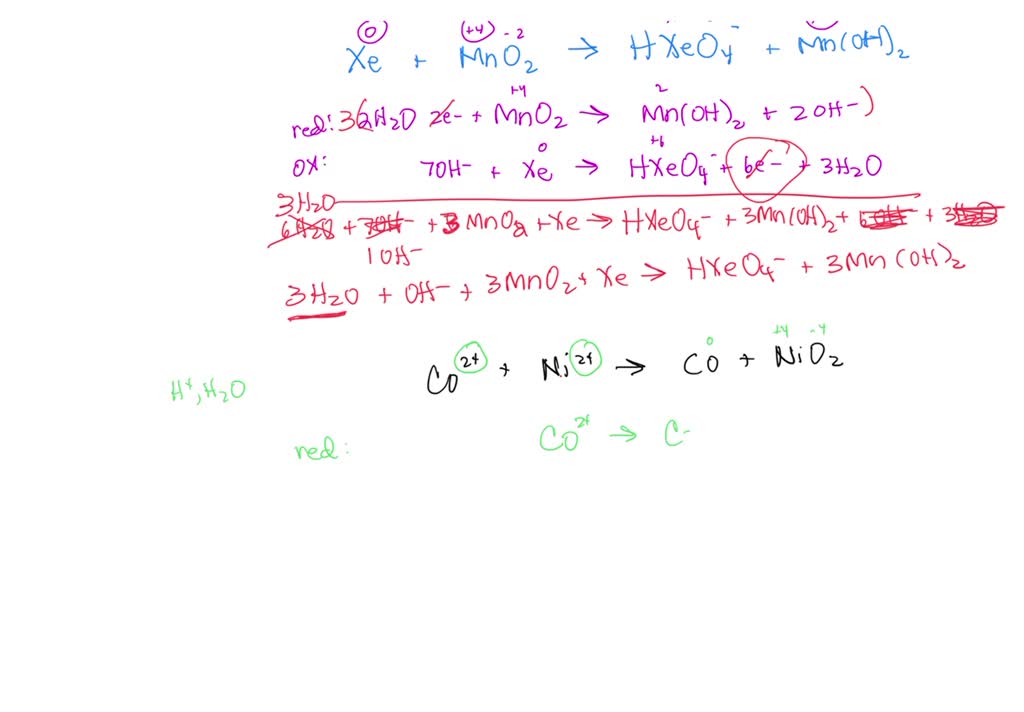 0 +4 -2
Xe + MnO₂ → HXeO₄⁻ + Mn(OH)₂
+4 2
red: 3(2H₂O 2e⁻ + MnO₂ → Mn(OH)₂ + 2OH⁻)
0 +6
ox: 7OH⁻ + Xe → HXeO₄⁻ + 6e⁻ + 3H₂O
3H₂O
6H₂O + 7OH⁻ + 3MnO₂ + Xe → HXeO₄⁻ + 3Mn(OH)₂ + 6OH⁻ + 3H₂O
1OH⁻
3H₂O + OH⁻ + 3MnO₂ + Xe → HXeO₄⁻ + 3Mn(OH)₂
0 +4 -4
Co²⁺ + Ni²⁺ → Co + NiO₂
H⁺, H₂O
red: Co²⁺ → C